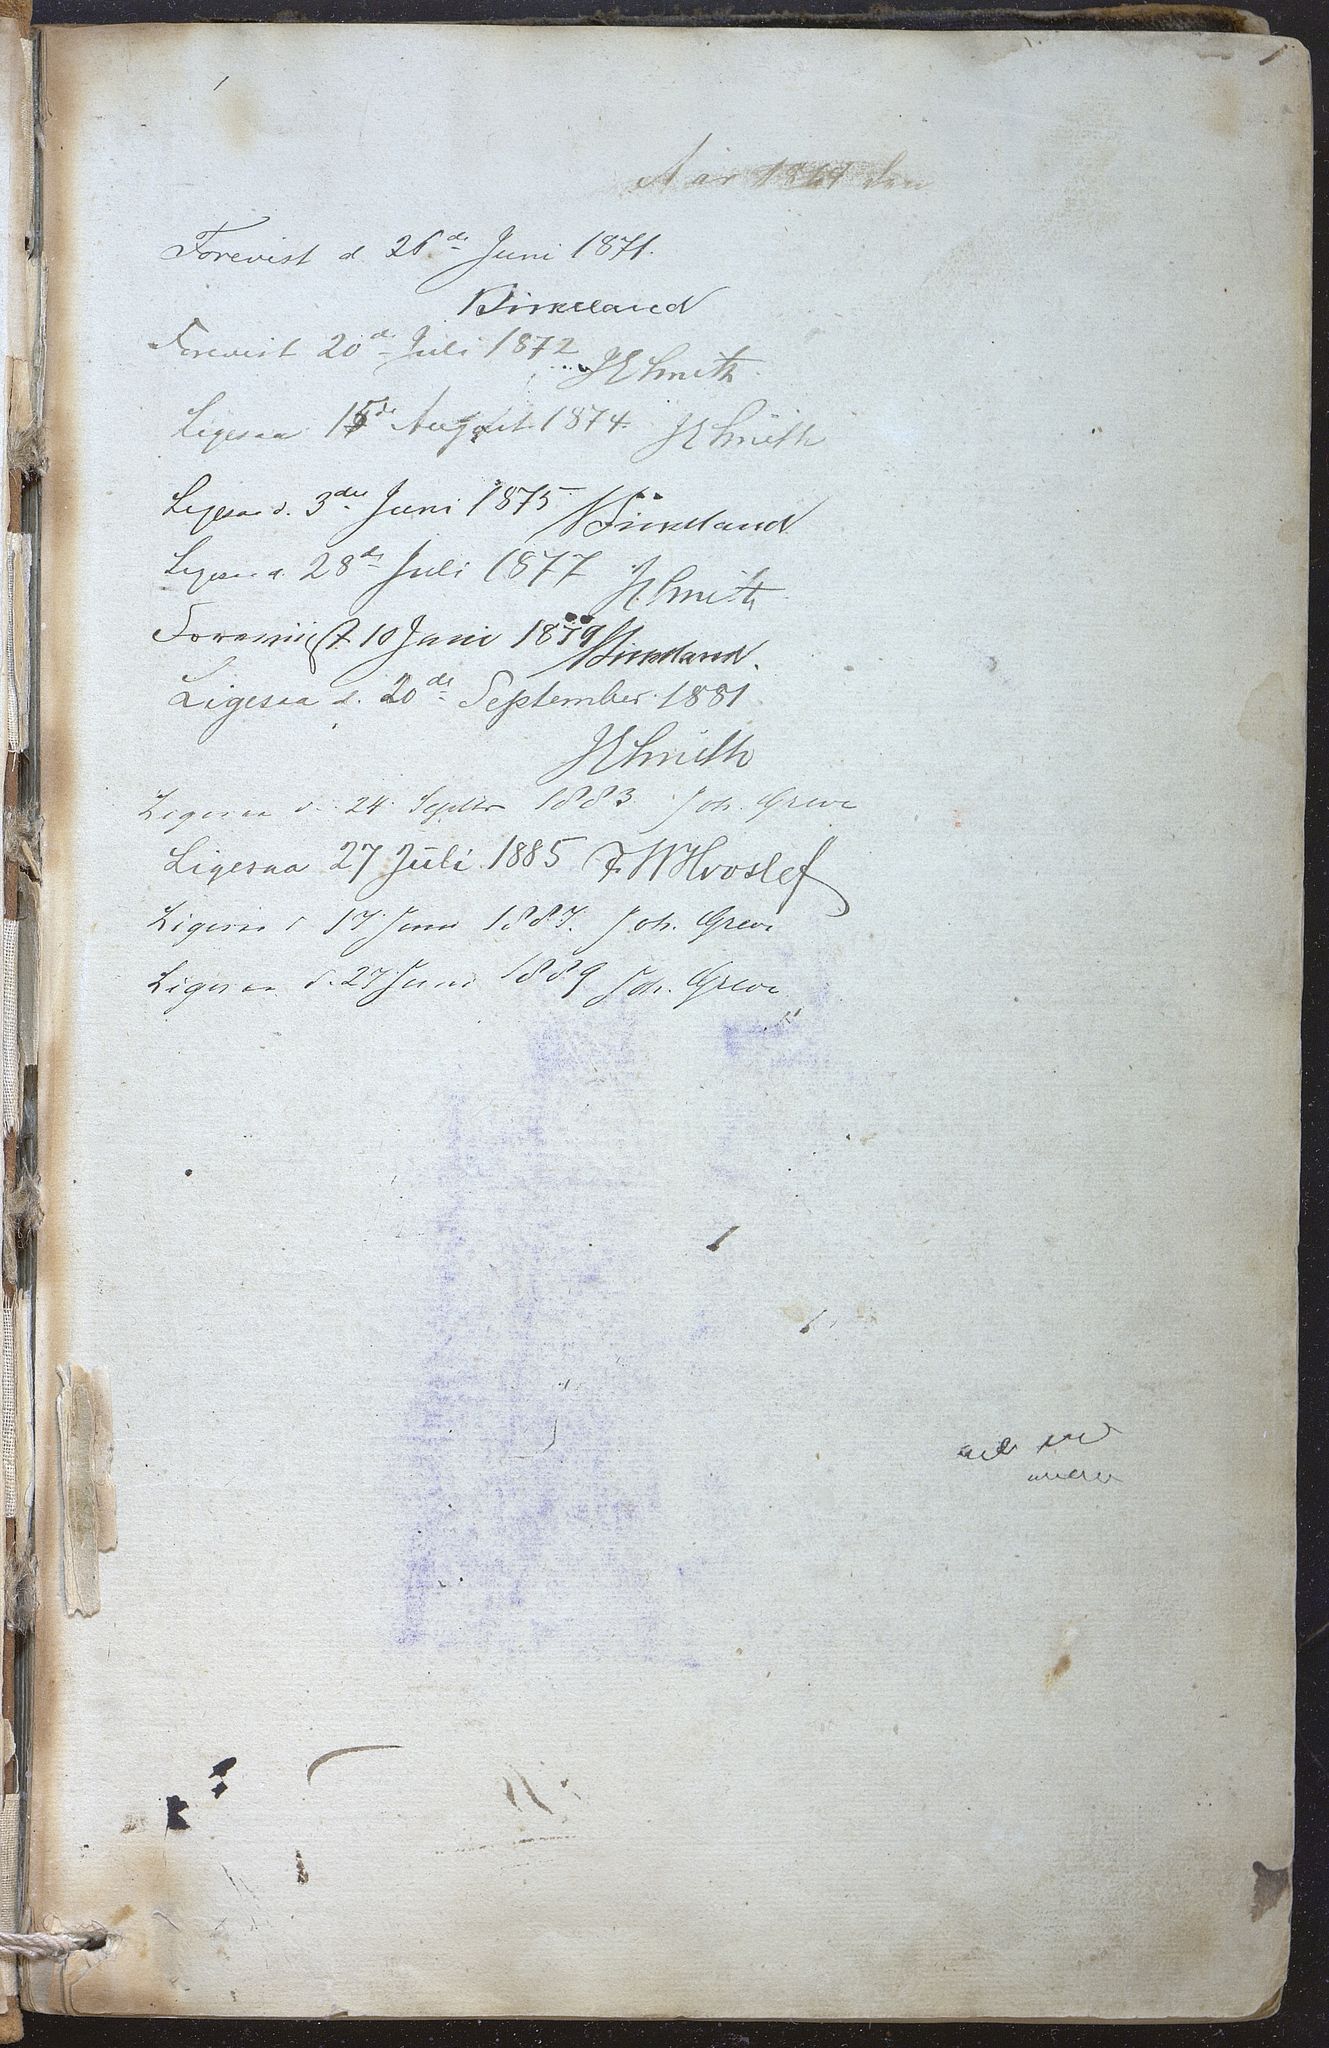 Aar 1869 den
Forevist d 26de Juni 1871.
Birkeland
Forevist 20de Juli 1872
JESmith
Ligesaa 15de August 1874. JESmith
Ligesaa d. 3die Juni 1875 Birkeland
Ligesaa d. 28de Juli 1877 JESmith
Foreviist 10 Juni 1879 Birkeland.
Ligesaa d. 20de September 1881
JESmith
Ligesaa d. 24 Septbr 1883 Joh. Greve
Ligesaa 27 Juli 1885 F. W Hvoslef
Ligesaa d 17 Juni 1887. Joh. Greve
Ligesaa d. 27 Juni 1889 Joh. Greve